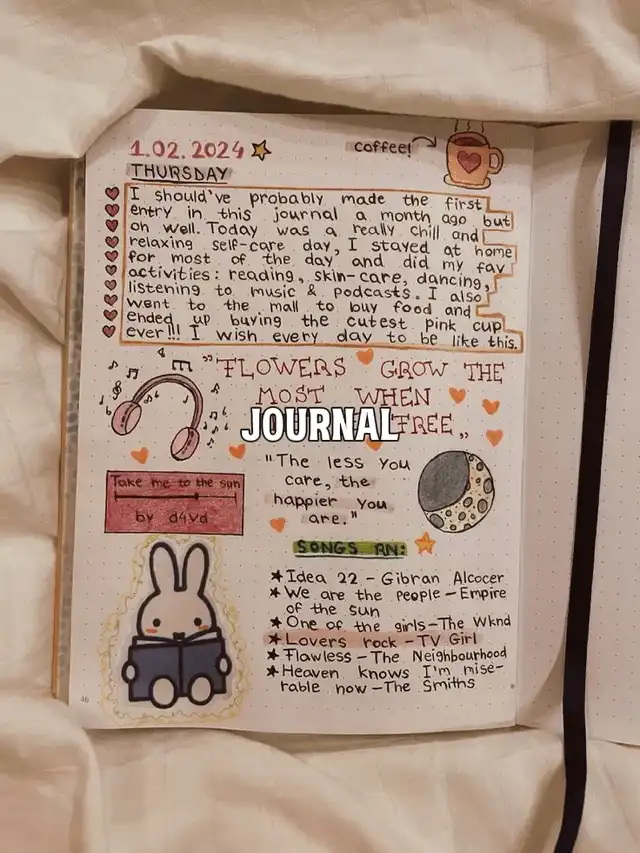 1.02.2024
coffee!
THURSDAY
I should've probably made the first
entry in this journal a month ago but
oh well. Today was a really chill and
relaxing self-care day, I stayed at home
for most of the day and did my fav
activities: reading, skin-care, dancing,
listening to music & podcasts. I also
went to the mall to buy food and
ended up buying the cutest pink cup
ever!!! I wish every day to be like this.
"FLOWERS GROW THE
MOST WHEN
FREE„
JOURNAL
"The less you
care, the
happier you
are."
Take me to the sun
by d4vd
SONGS RN:
★Idea 22 - Gibran Alcocer
★We are the people - Empire
of the sun
★One of the girls - The Wknd
★Lovers rock - TV Girl
★Flawless - The Neighbourhood
★Heaven knows I'm mise-
rable now - The Smiths
46